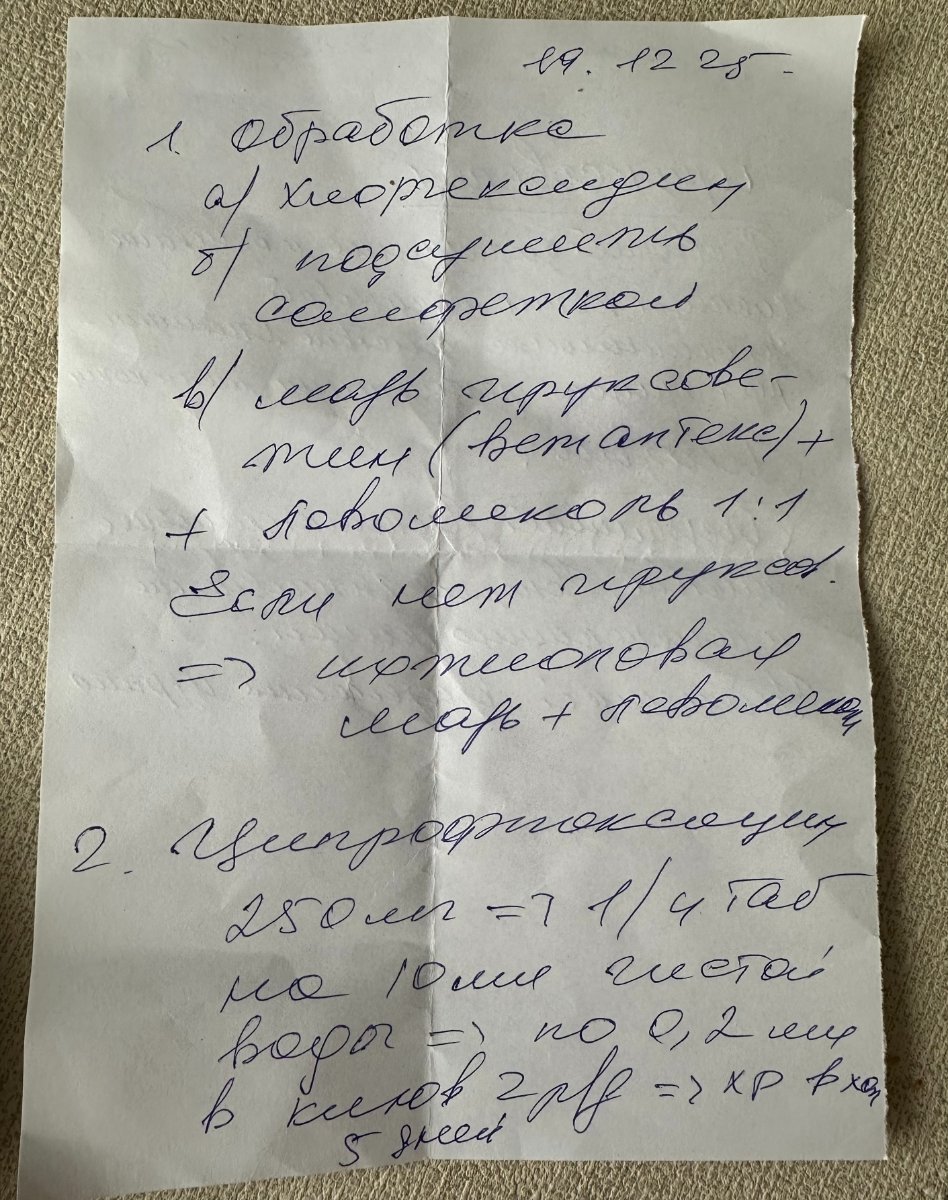 19. 12 25.
1. Обработка
а) хлоргексидин
б) подсушить
салфеткой
в) мазь ируксове-
тин (ветаптека) +
+ левомеколь 1:1
Если нет ируксов.
=> ихтиоловая
мазь + левомекол
2. Ципрофлоксацин
250 мг => 1/4 таб
на 10 мл чистой
воды => по 0,2 мл
в клюв 2 р/д => хр в хол
5 дней